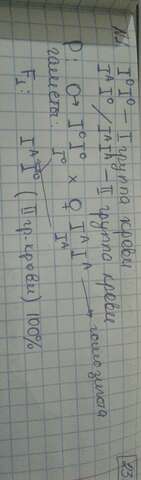 №1 I⁰I⁰ – I группа крови
IᴬI⁰ / IᴬIᴬ – II группа крови
P: ♂ I⁰I⁰ × ♀ IᴬIᴬ → гомозигота
гаметы: I⁰ Iᴬ
F₁: IᴬI⁰ (II гр. крови) 100%
23